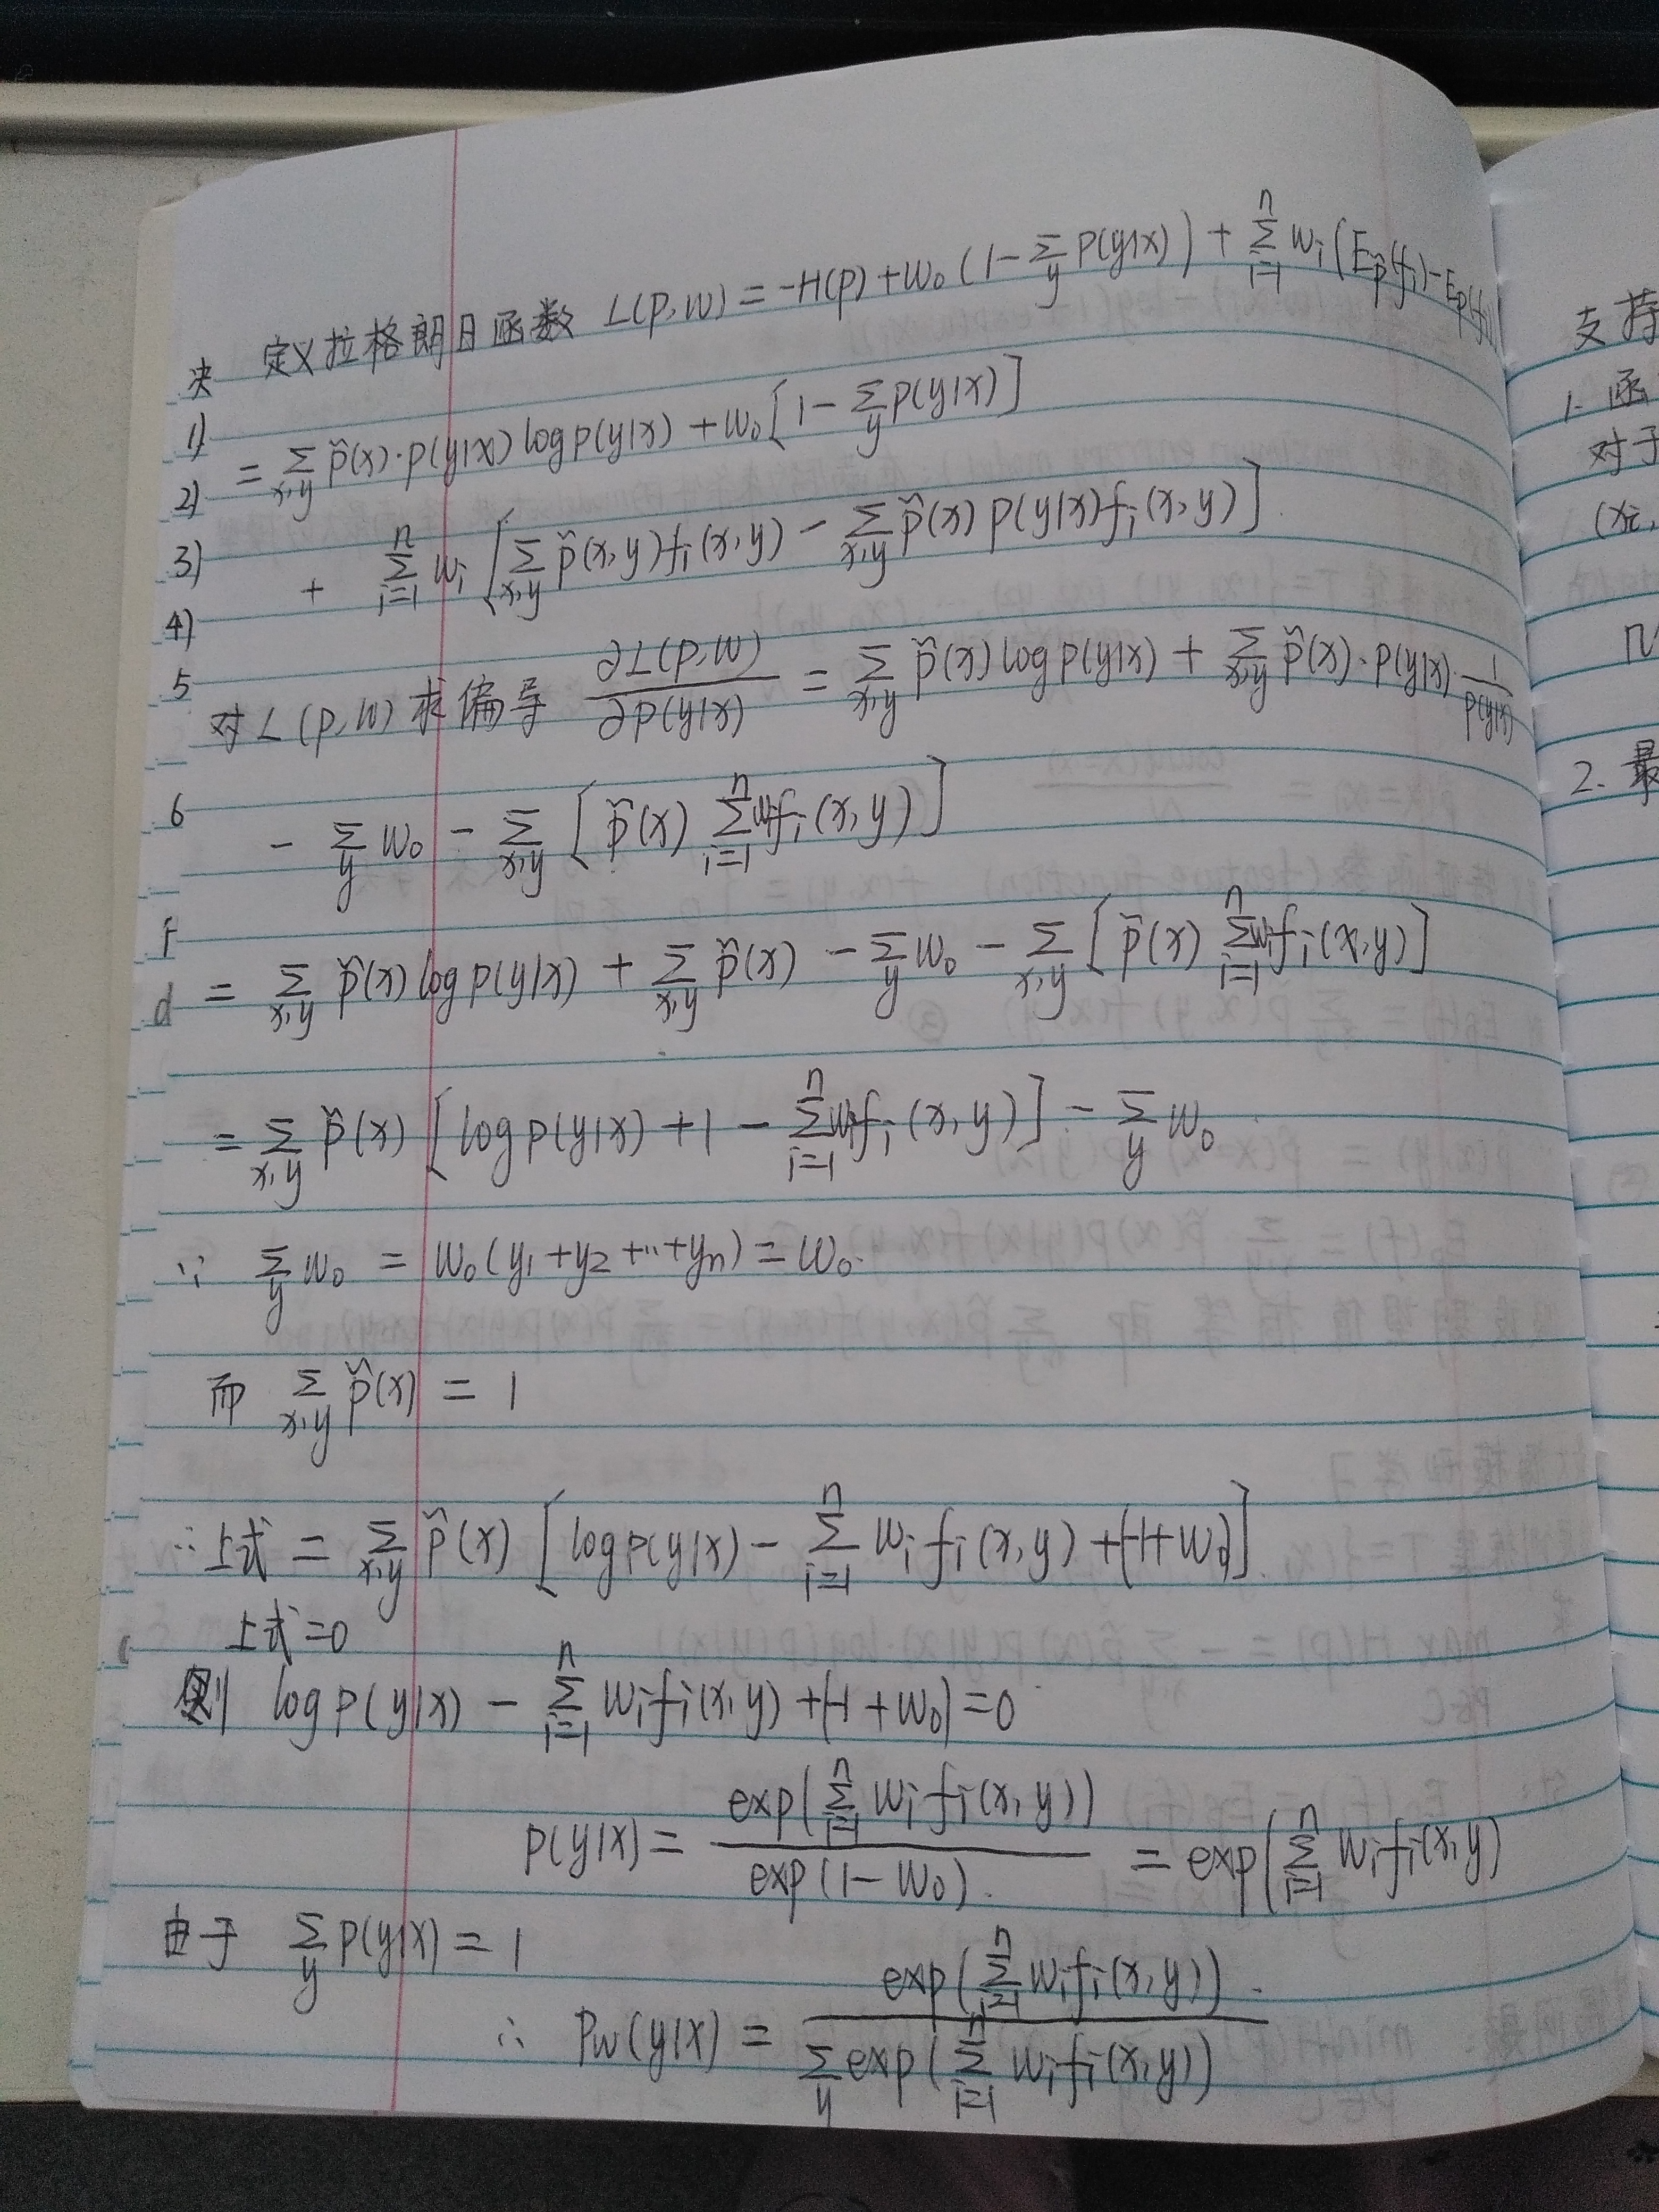 定义拉格朗日函数 L(P,W) = -H(P) + W₀ (1 - Σ_y P(y|x)) + Σ_{i=1}^n wᵢ (E_p̃(fᵢ) - E_p(fᵢ))
= Σ_{x,y} p̃(x)·p(y|x) log p(y|x) + W₀ [1 - Σ_y p(y|x)]
+ Σ_{i=1}^n wᵢ [Σ_{x,y} p̃(x,y) fᵢ(x,y) - Σ_{x,y} p̃(x) p(y|x) fᵢ(x,y)]
对 L(P,W) 求偏导 ∂L(P,W)/∂P(y|x) = Σ_{x,y} p̃(x) log p(y|x) + Σ_{x,y} p̃(x)·p(y|x)·1/p(y|x)
- Σ_y W₀ - Σ_{x,y} [p̃(x) Σ_{i=1}^n wᵢfᵢ(x,y)]
= Σ_{x,y} p̃(x) log p(y|x) + Σ_{x,y} p̃(x) - Σ_y W₀ - Σ_{x,y} [p̃(x) Σ_{i=1}^n wᵢfᵢ(x,y)]
= Σ_{x,y} p̃(x) [log p(y|x) + 1 - Σ_{i=1}^n wᵢfᵢ(x,y)] - Σ_y W₀
∵ Σ_y W₀ = W₀(y₁+y₂+…+yₙ) = W₀
而 Σ_{x,y} p̃(x) = 1
∴ 上式 = Σ_{x,y} p̃(x) [log p(y|x) - Σ_{i=1}^n wᵢ fᵢ(x,y) + (-1+W₀)]
上式=0
则 log p(y|x) - Σ_{i=1}^n wᵢfᵢ(x,y) + (-1+W₀) = 0
P(y|x) = exp(Σ_{i=1}^n wᵢ fᵢ(x,y)) / exp(1-W₀) = exp(Σ_{i=1}^n wᵢfᵢ(x,y)
由于 Σ_y P(y|x) = 1
∴ P_W(y|x) = exp(Σ_{i=1}^n wᵢfᵢ(x,y)) / Σ_y exp(Σ_{i=1}^n wᵢfᵢ(x,y))
1)
2)
3)
4)
5
6
d
支持
1. 函
对于
2. 最